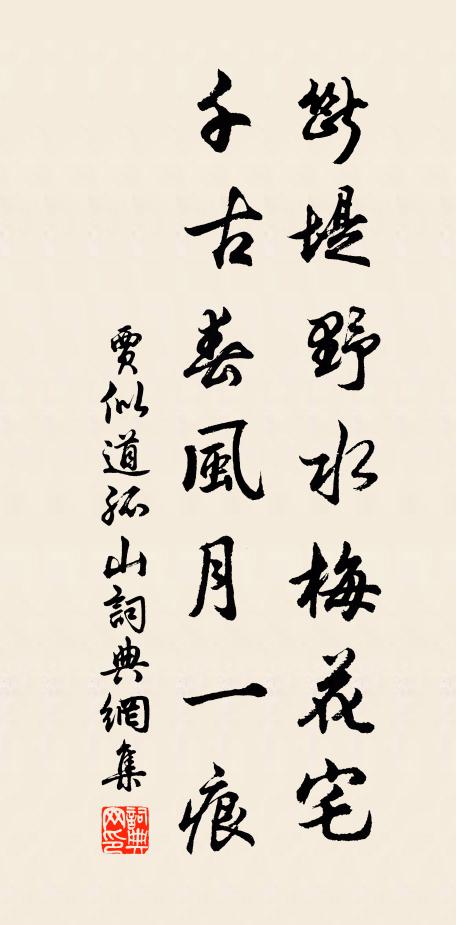 斷堤野水梅花宅
千古春風月一痕
賈似道孤山詞典網集
詞典网印